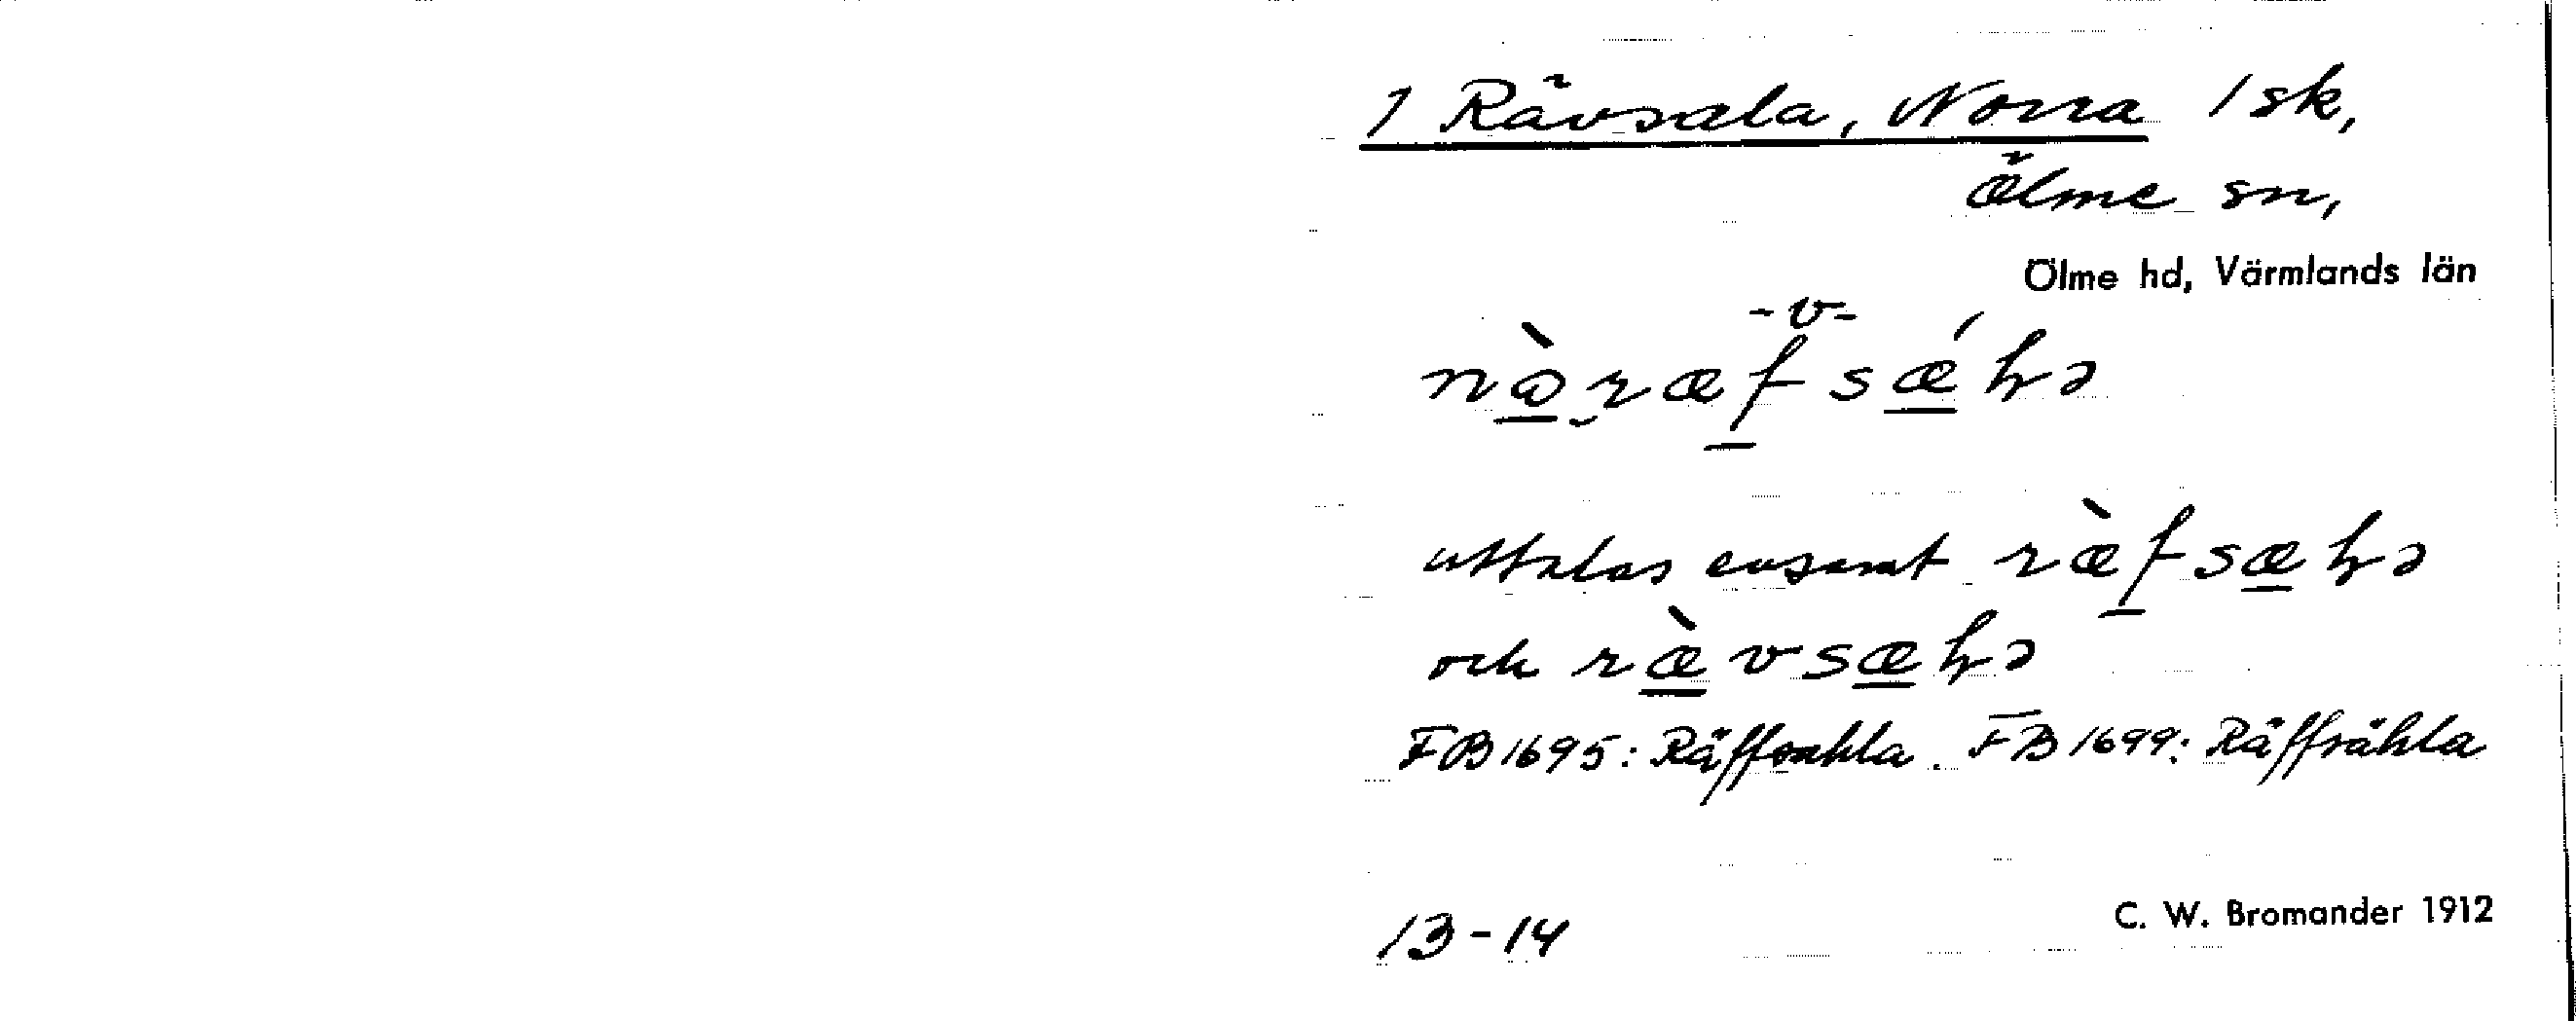 1 Rävsala, Norra 1 sk,
Ölme sn,
Ölme hd, Värmlands län
-v-
nòræfsǽꞕə
uttalas ensamt ræ̀fsæꞕə
och ræ̀vsæꞕə
FB 1695: Räffsahla. FB 1699: Räffsähla
13-14
C. W. Bromander 1912